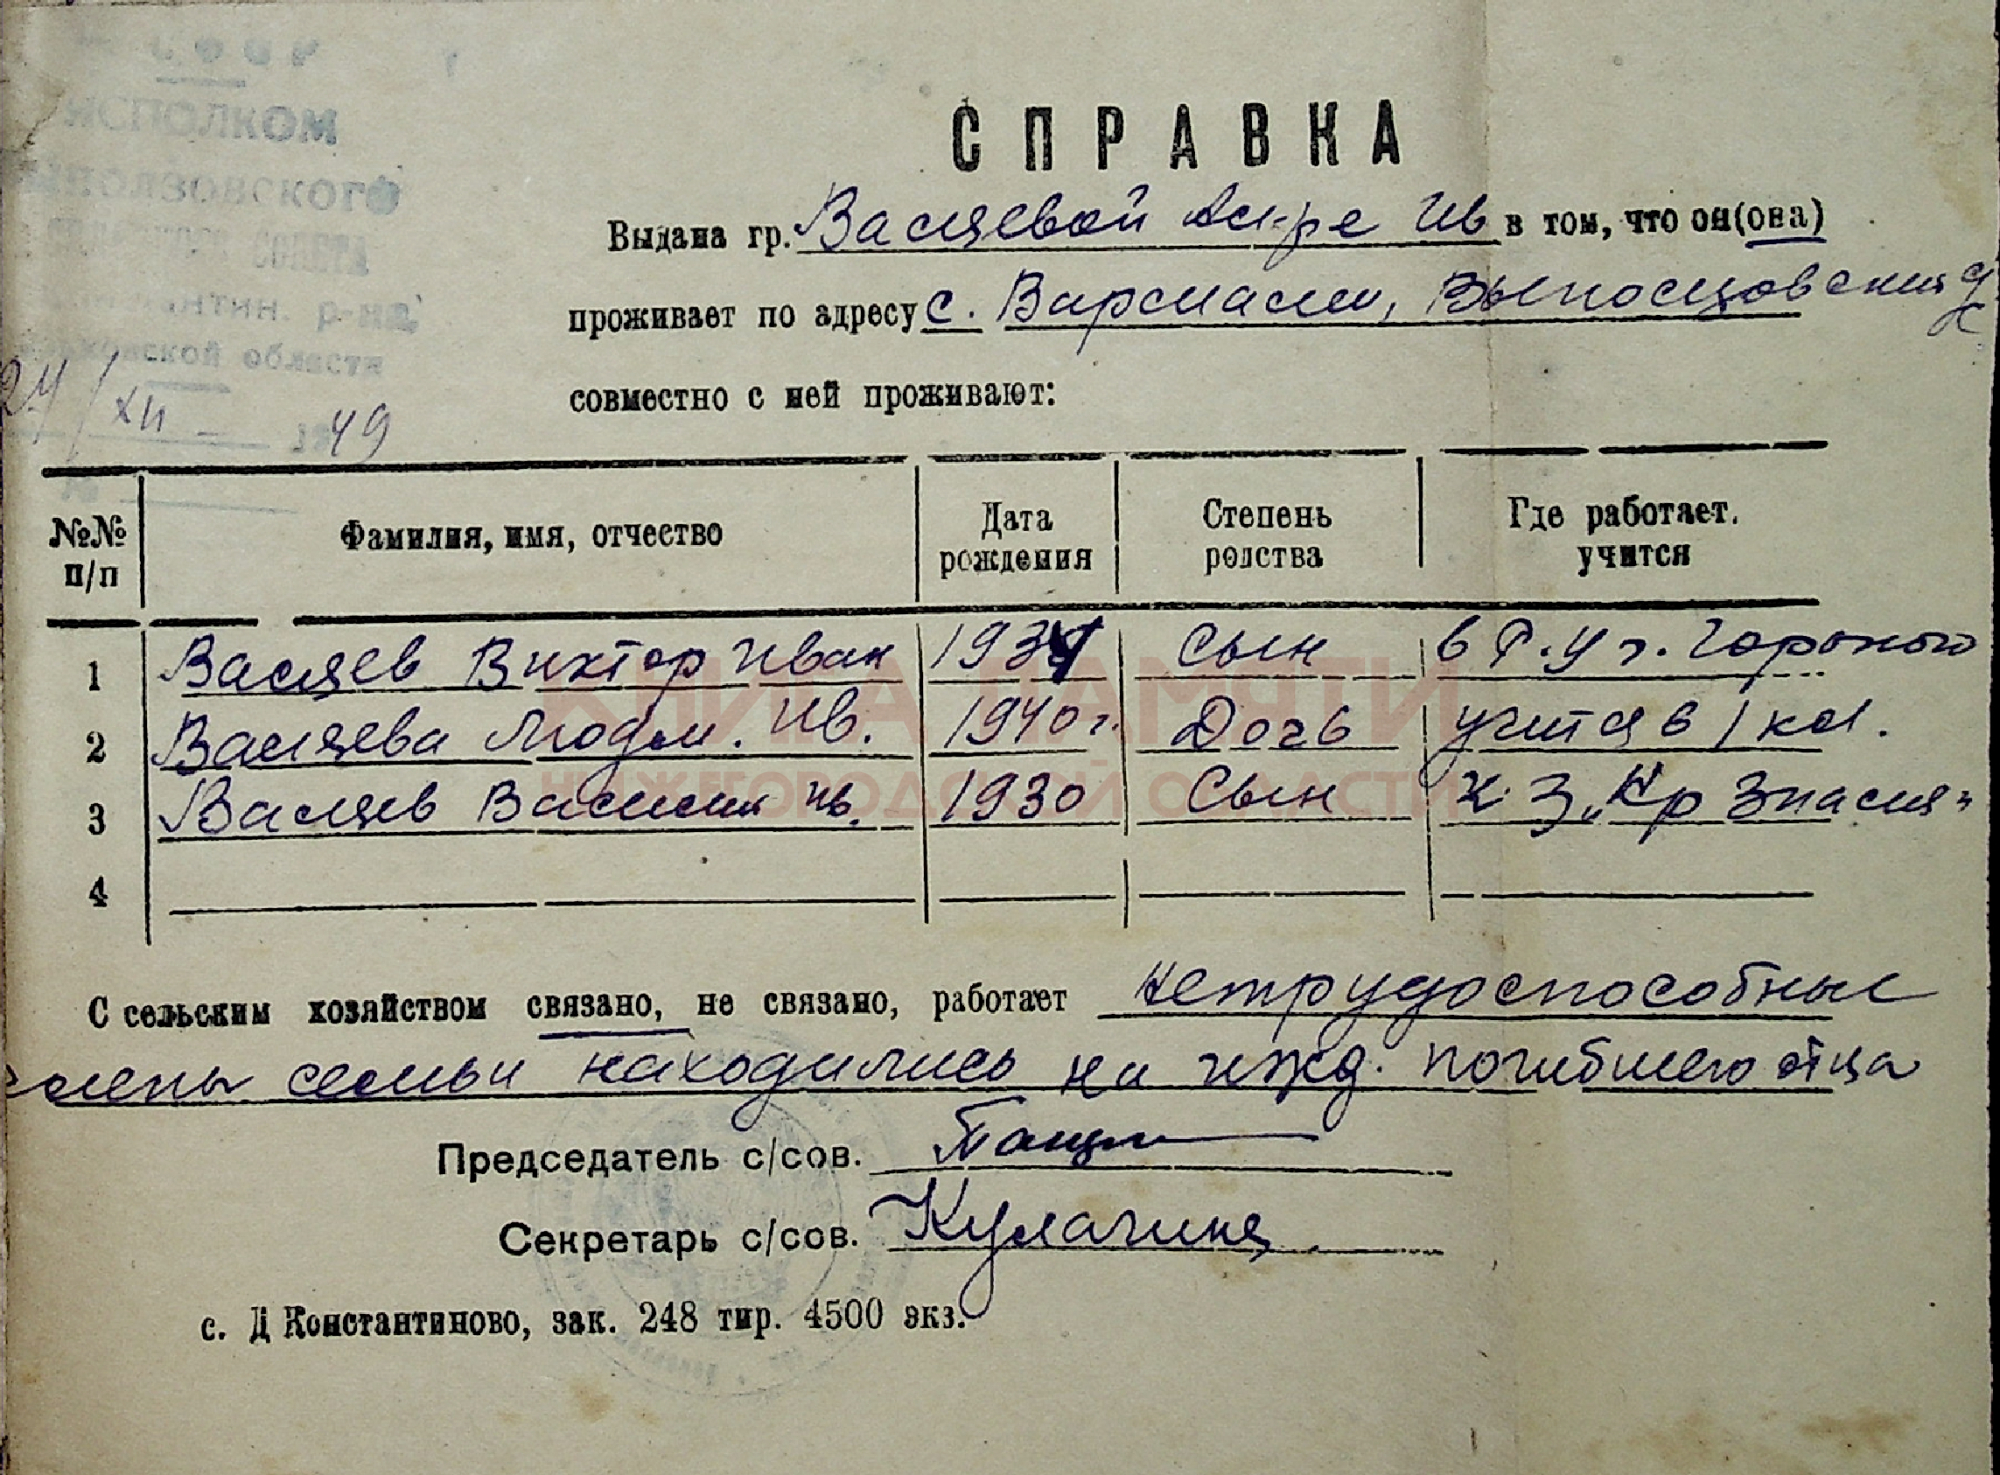 ИСПОЛКОМ
р-на
области
24/XII 1949
СПРАВКА
Выдана гр. Валяевой Ал-ре Ив в том, что он(она)
проживает по адресу с. Вармалеи,
совместно с ней проживают:
№№ п/п Фамилия, имя, отчество Дата рождения Степень родства Где работает. учится
1 Валяев Виктор Иван 1934 Сын в Р.У г. Горького
2 Валяева Людм. Ив. 1940 г. Дочь учится в 1 кл.
3 Валяев Василий Ив. 1930 Сын к-з „Кр
4
С сельским хозяйством связано, не связано, работает Нетрудоспособные
члены семьи находились на ижд. погибшего отца
Председатель с/сов.
Секретарь с/сов. Кулагина
с. Д Константиново, зак. 248 тир. 4500 экз.
КНИГА ПАМЯТИ
НИЖЕГОРОДСКОЙ ОБЛАСТИ